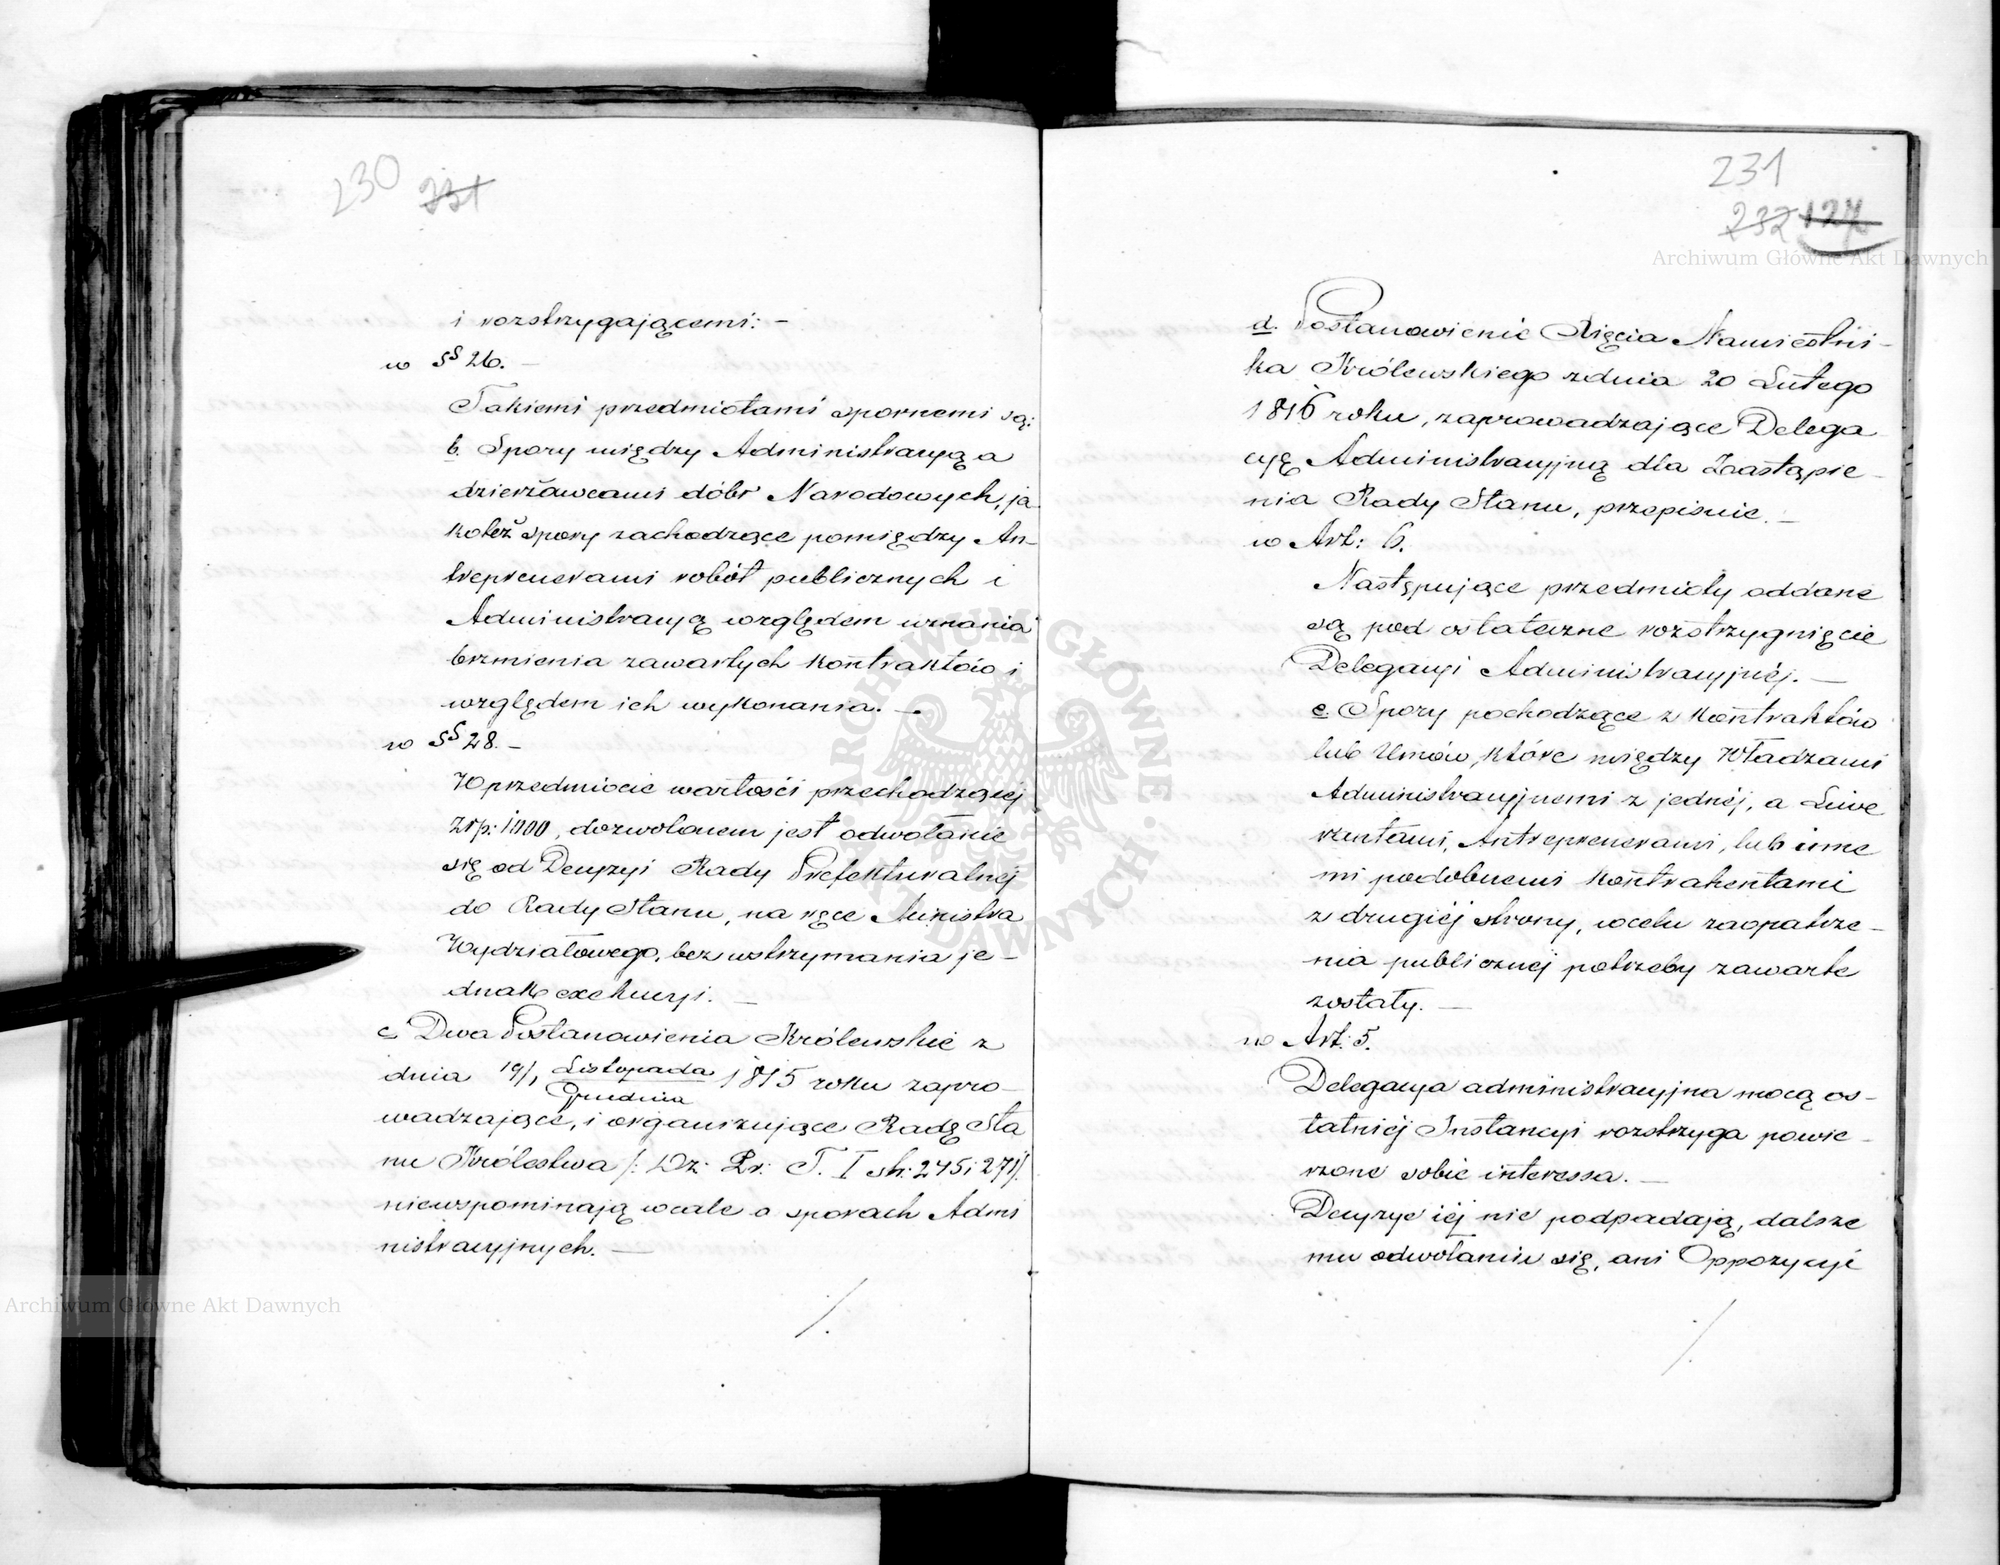 230 231
i rozstrzygającemi: –
w §§ 26. –
Takiemi przedmiotami spornemi są:
b. Spory między Administracyą a
dzierżawcami dóbr Narodowych, ja
koteż spory zachodzące pomiędzy An–
trepreneurami robót publicznych i
Administracyą względem uznania
brzmienia zawartych Kontraktów i
względem ich wykonania. –
w §§ 28. –
W przedmiocie wartości przechodzącéj
Złp: 1000, dozwolonem jest odwołanie
się od Decyzyi Rady Prefekturalnéj
do Rady Stanu, na ręce Ministra
Wydziałowego, bez wstrzymania je–
dnak exekucyi. –
c. Dwa Postanowienia Królewskie z
dnia 19/1 Listopada 1815 roku zapro–
Grudnia
wadzające, i organizujące Radę Sta
nu Królestwa /: Dz: Pr: T. I str: 245 i 271/.
niewspominają wcale o sporach Admi
nistracyjnych. –
/.
231
232 127
d. Postanowienie Xięcia Namiestni–
ka Królewskiego z dnia 20 Lutego
1816 roku, zaprowadzające Delega
cyę Administracyjną dla Zastąpie–
nia Rady Stanu, przepisuie. –
w Art: 6.
Następujące przedmioty oddane
są pod ostateczne rozstrzygnięcie
Delegacyi Administracyjnéj. –
c. Spory pochodzące z Kontraktów
lub Umów, które między Władzami
Administracyjnemi z jednéj, a Liwe
rantami, Antrepreneurami, lub inne
mi podobnemi Kontrahentami
z drugiéj strony, w celu zaopatrze–
nia publicznéj potrzeby zawarte
zostały. –
w Art. 5.
Delegacya administracyjna mocą os–
tatniéj Instancyi rozstrzyga powie–
rzone sobie interessa. –
Decyzye iéj nie podpadają, dalsze
mu odwołaniu się, ani Oppozycyi
/.
Archiwum Główne Akt Dawnych
ARCHIWUM GŁÓWNE AKT DAWNYCH
Archiwum Główne Akt Dawnych